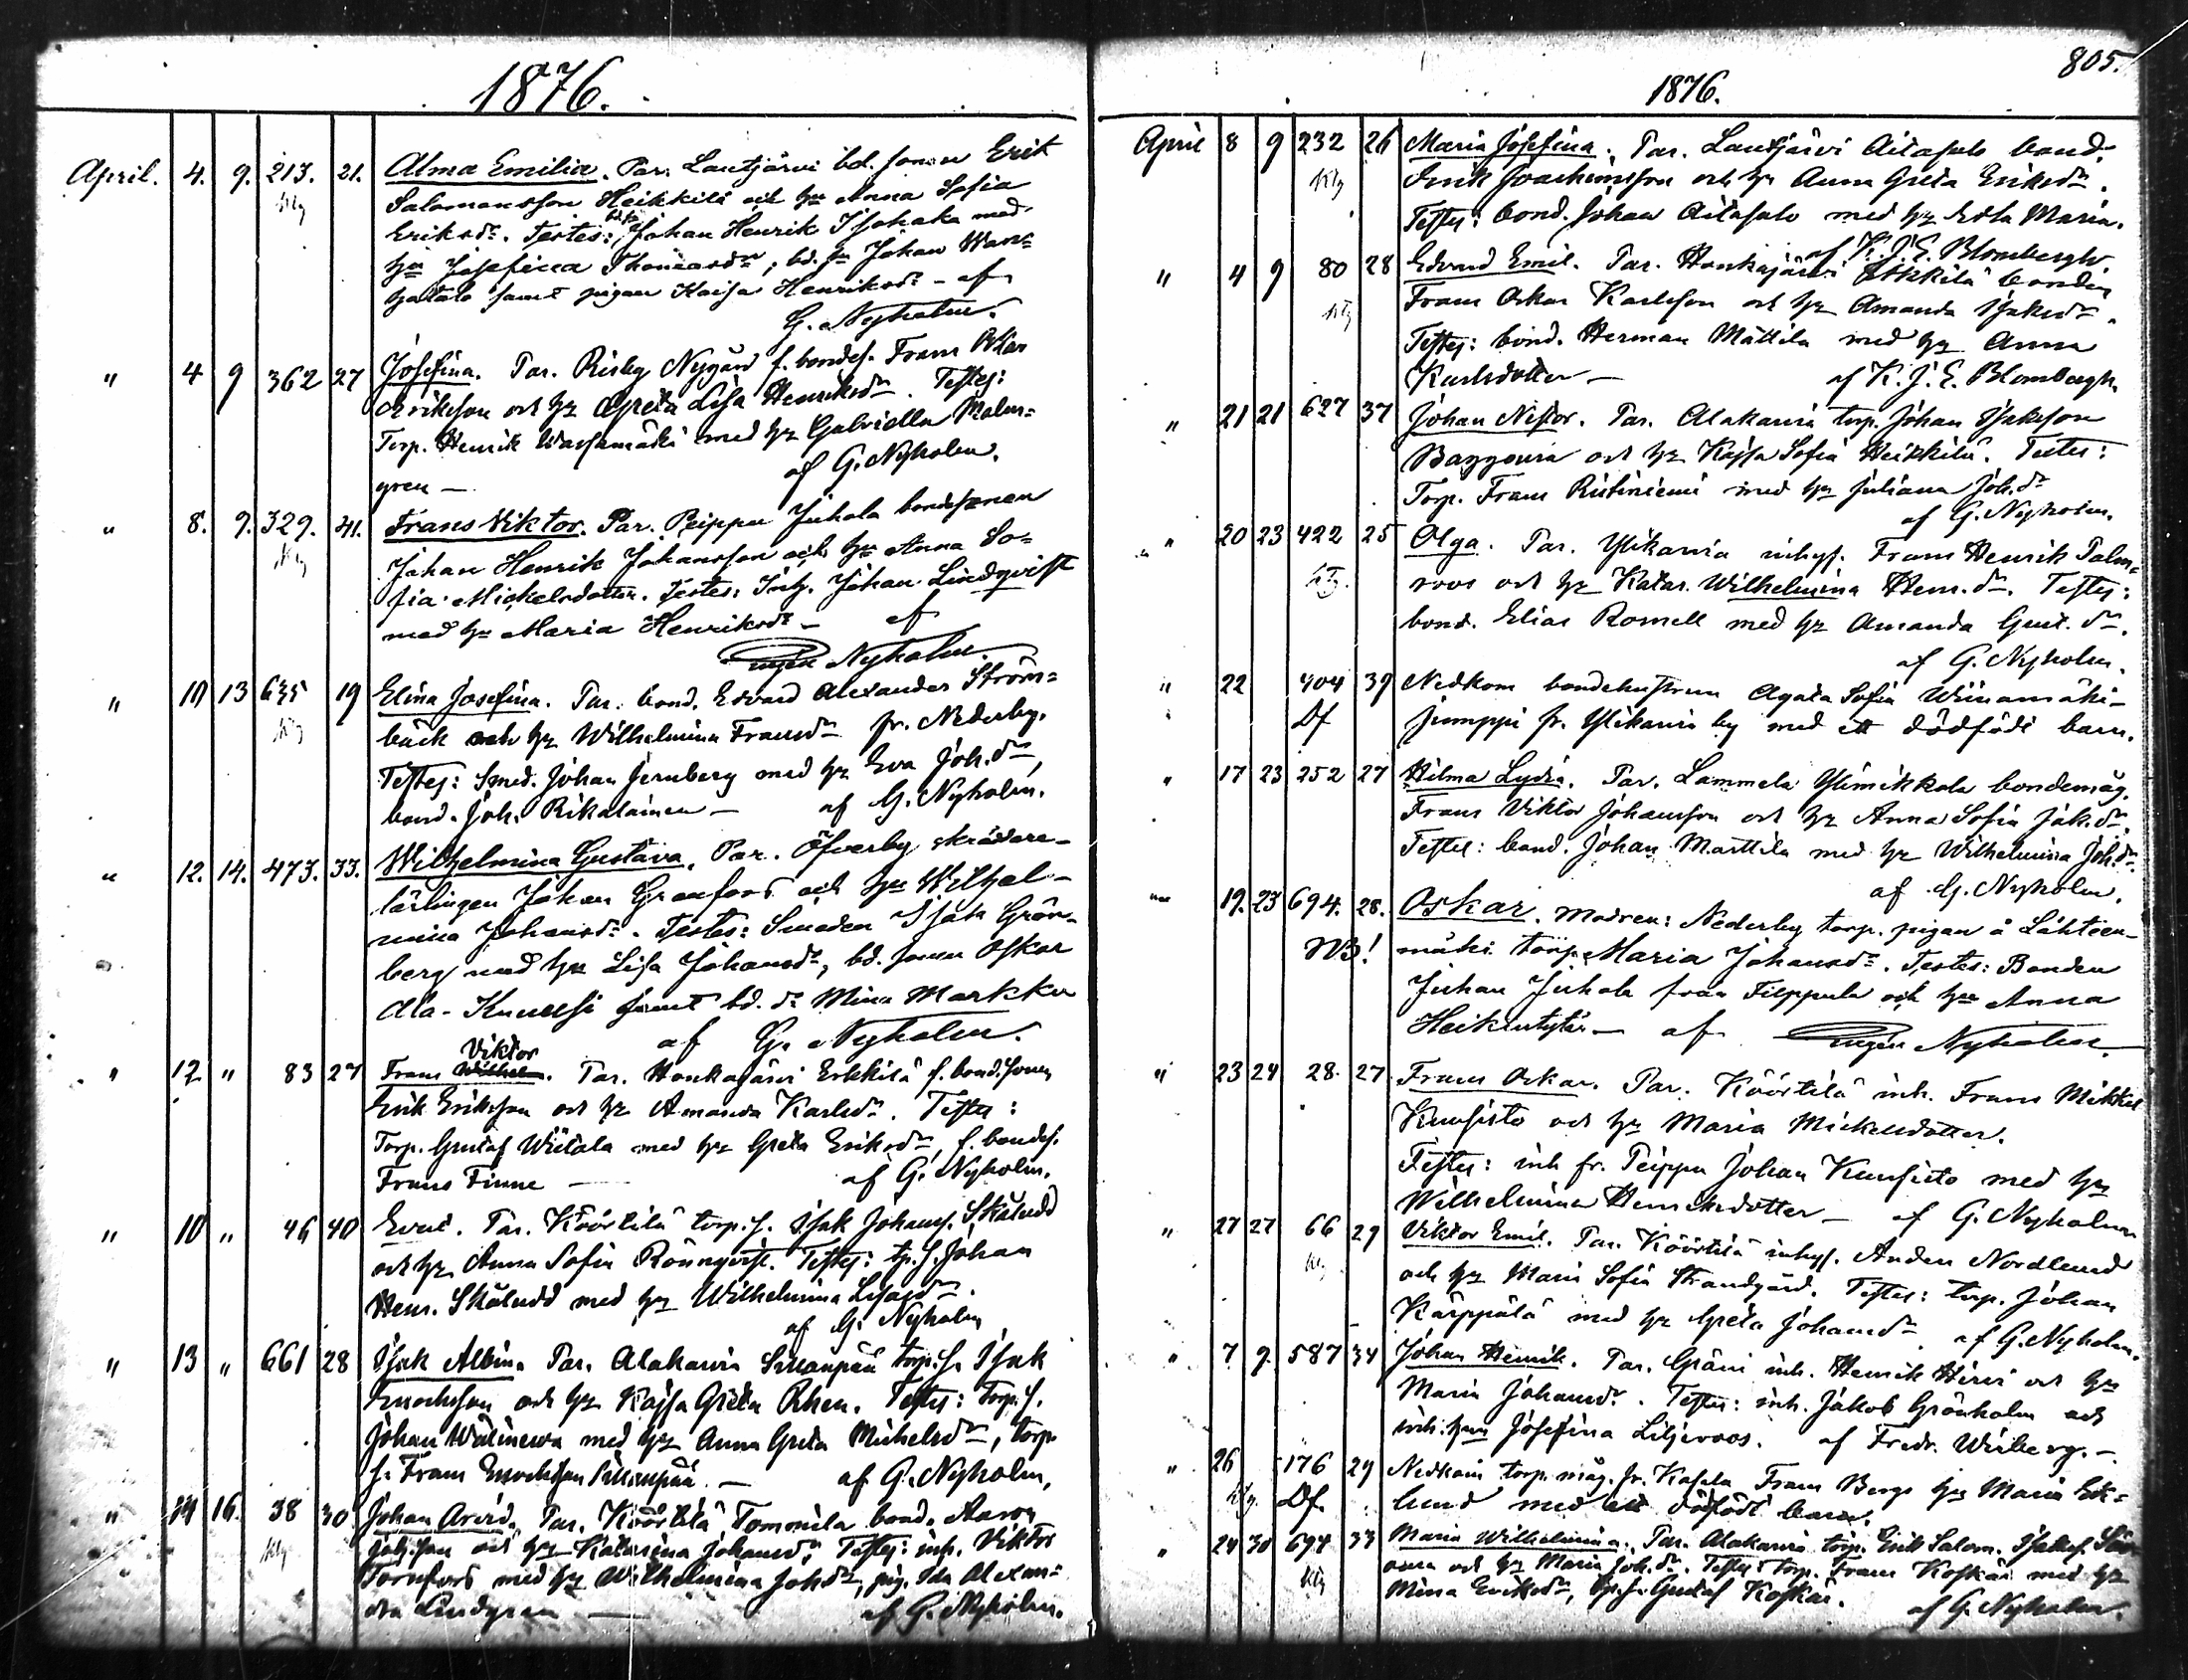 1876.
April. 4. 9. 213. 21. Alma Emilia. Par. Lautjärvi bd. sonen Erik
Salomonsson Heikkilä och hu Anna Sofia
Eriksdr. Testes: Johan Henrik Isohaka med
hu Josefina Thomasdr, bd. Johan Wans-
hatalo samt pigan Kaisa Henriksdr - af
G. Nyholm.
" 4 9 362 27 Josefina. Par. Risby Nygård f. bondes. Frans Oskar
Eriksson och hu Greta Lisa Henriksdr. Testes:
Torp. Henrik med hu Gabriella Malm-
gren — af G. Nyholm.
" 8. 9. 329. 41. Frans Viktor. Par. Peippu Juhola bondesonen
Johan Henrik Johansson och hu Anna So-
fia Mickelsdotter. Testes: Inh. Johan Lindqvist
med hu Maria Henriksdr - af
Nyholm.
" 10 13 635 19 Elina Josefina. Par. bond. Edvard Alexander Ström-
bäck och hu Wilhelmina Fransdr fr. Nederby.
Testes: Smed. Johan Jernberg med hu Eva Joh.dr,
bond. Joh. Rikalainen — af G. Nyholm.
" 12. 14. 473. 33. Wilhelmina Gustava. Par. Öfverby skrädare-
lärlingen Johan Granfors och hu Wilhel-
mina Johansdr. Testes: Smeden Isak Grön-
berg med hu Lisa Johansdr, bd. sonen Oskar
Ala- samt bd. dr Mina Markku
af G. Nyholm.
Viktor
" 12 " 83 27 Frans Wilhelm. Par. Honkajärvi Erkkilä f. bond.sonen
Erik Eriksson och hu Amanda Karlsdr. Testes:
Torp. Gustaf Wiitala med hu Greta Eriksdr, f. bondes.
Frans Finne — af G. Nyholm.
" 10 " 46 40 Evert. Par. Köörtilä torp.s. Isak Johans. Sköludd
och hu Anna Sofia Rönnqvist. Testes: tp.s. Johan
Henr. Sköludd med hu Wilhelmina
af G. Nyholm
" 13 " 661 28 Isak Albin. Par. Alakarvia Sillanpää torp.s. Isak
Enochsson och hu Kajsa Greta Rhen. Testes: Torp.s.
Johan med hu Anna Greta Michelsdr, torp.
s. Frans Enochsson Sillanpää — af G. Nyholm,
" 14 16. 38 30 Johan Arvid. Par. Köörtilä Tommila bond. Aaron
och hu Katarina Johansdr. Testes: inh. Viktor
Tornfors med hu Wilhelmina Johdr, pig. Ida Alexan-
dra Lindgren — af G. Nyholm.
805.
1876.
April 8 9 232 26 Maria Josefina. Par. Lautjärvi Aitasalo bond.
Erik Joachimsson och hu Anna Greta Eriksdr.
Testes: bond. Johan Aitasalo med hu Edla Maria.
af K. J. E. Blombergh.
" 4 9 80 28 Edvard Emil. Par. Honkajärvi Erkkilä bonden
Frans Oskar Karlsson och hu Amanda Isaksdr.
Testes: bond. Herman Mättila med hu Anna
Karlsdotter — af K. J. E. Blombergh.
" 21 21 627 37 Johan Nestor. Par. Alakarvia torp. Johan Isaksson
och hu Kajsa Sofia Heikkilä. Testes:
Torp. Frans Riitiniemi med hu Juliana Joh.dr
af G. Nyholm.
" 20 23 422 25 Olga. Par. Ylikarvia inhys. Frans Henrik Palm-
roos och hu Katar. Wilhelmina Henr.dr. Testes:
bond. Elias Romell med hu Amanda Gust.dr.
af G. Nyholm.
" 22 404 39 Nedkom bondehustrun Agata Sofia Wiinamäki-
Jumppi fr. Ylikarvia by med ett dödfödt barn.
Df
" 17 23 252 27 Hilma Lydia. Par. Lammela Ylimikkola bondemåg.
Frans Viktor Johansson och hu Anna Sofia Jak.dr.
Testes: bond. Johan Marttila med hu Wilhelmina Joh.dr.
af G. Nyholm.
" 19. 23 694. 28. Oskar. Modren: Nederby torp. pigan å Lähteen-
NB! mäki torp Maria Johansdr. Testes: Bonden
Juhan Juhola från Filppula och hu Anna
Heikintytär — af Nyholm.
" 23 24 28. 27 Frans Oskar. Par. Köörtilä inh. Frans Mikkel
Kuusisto och hu Maria Mickelsdotter.
Testes: inh fr. Peippu Johan Kuusisto med hu
Wilhelmina Henriksdotter — af G. Nyholm
" 27 27 66 29 Viktor Emil. Par. Köörtilä inhys. Anders Nordlund
och hu Maria Sofia Strandgård. Testes: torp. Johan
Kärppälä med hu Greta Johansdr. af G. Nyholm.
" 7 9 587 34 Johan Henrik. Par. Gräni inh. Henrik Hirvi och hu
Maria Johansdr. Testes: inh. Jakob Grönholm och
inh. hun Josefina Liljeroos. af Fredr. Wiberg. -
" 26 176 29 Nedkom torp. måg. fr. Kasala Frans Bergs hu Maria Ek-
Df lund med ett dödfödt barn.
" 24 30 694 33 Maria Wilhelmina. Par. Alakarvia torp. Erik Salom. Isaks.
och hu Maria Joh.dr. Testes: torp. Frans Koskäs med hu
Mina Eriksdr, tp.s. Gustaf Koskäs. af G. Nyholm.